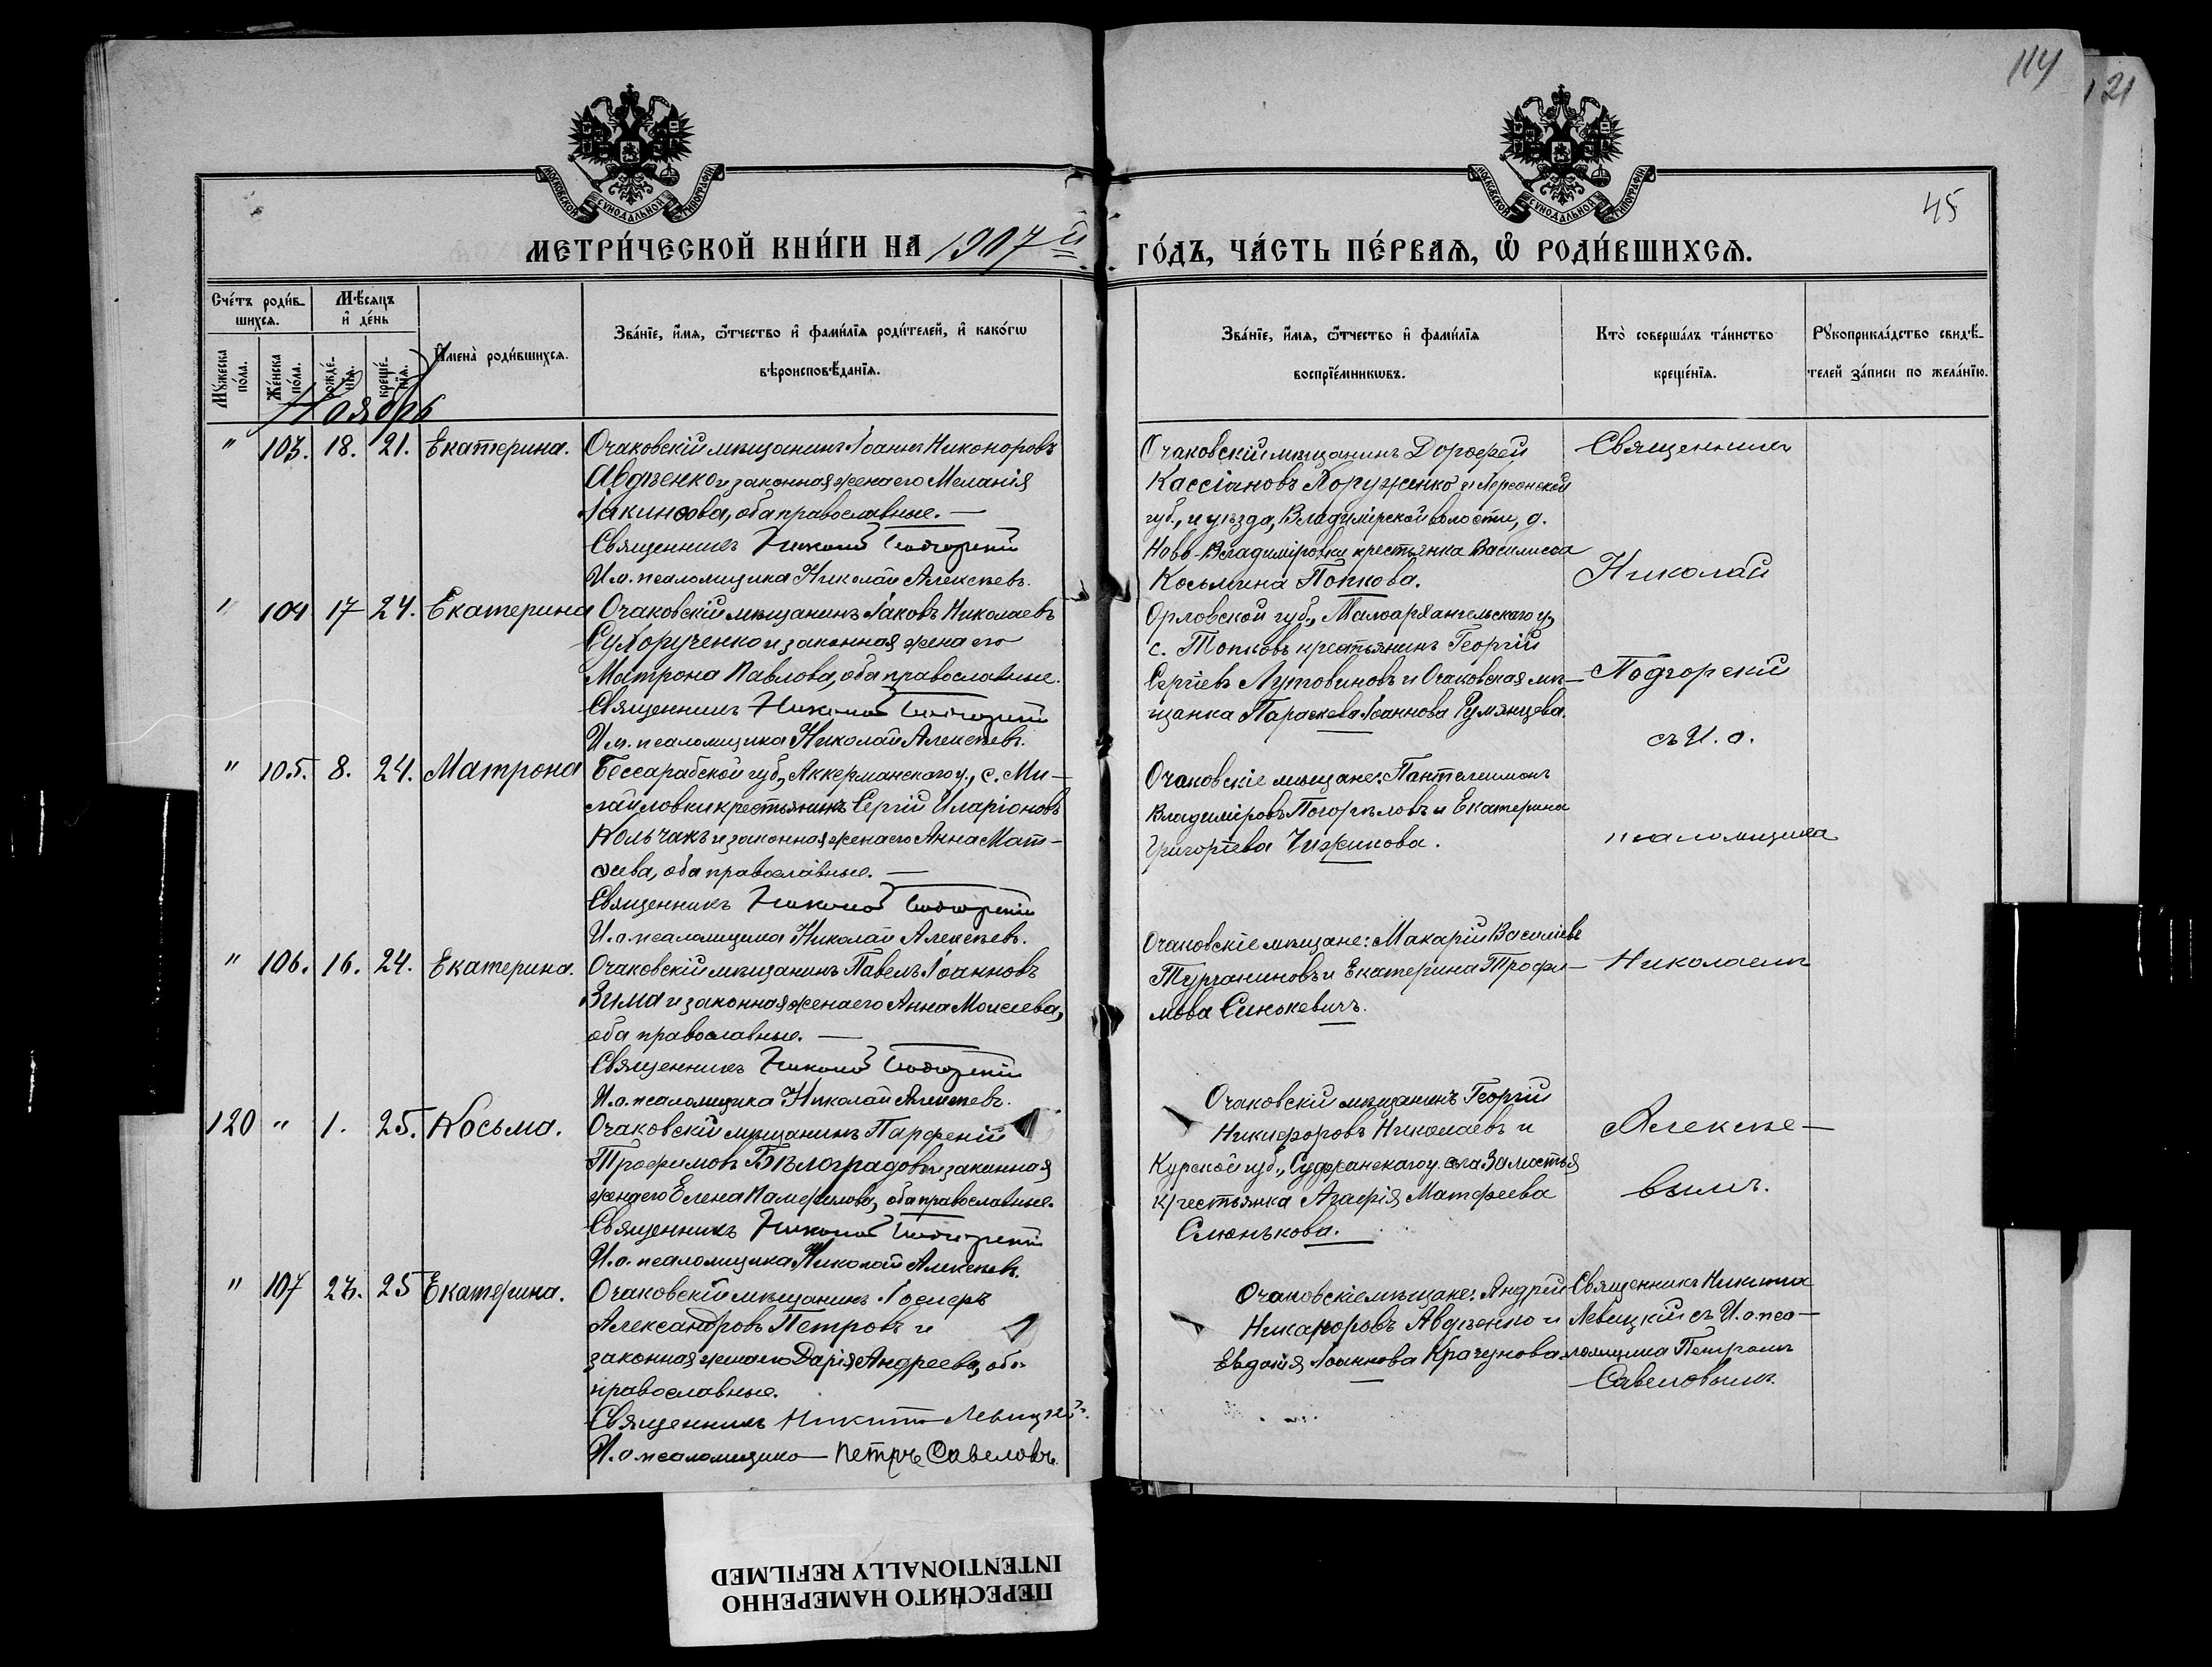 114
121
45
МОСКОВСКОЙ СУНОДАЛЬНОЙ ТИПОГРАФІИ
МОСКОВСКОЙ СУНОДАЛЬНОЙ ТИПОГРАФІИ
МЕТРИ́ЧЕСКОЙ КНИ́ГИ НА 1907й
ГО́ДЪ, ЧА́СТЬ ПЕ́РВАѦ, Ѡ РОДИ́ВШИХСѦ.
Сче́тъ роди́в-
шихсѧ.
Мѣ́сѧцъ
и҆ де́нь
Мꙋ́жеска по́ла.
Же́нска по́ла.
рожде́-нїѧ.
креще́-нїѧ.
И҆мена̀ роди́вшихсѧ.
Зва́нїе, и҆́мѧ, ѻ҆́тчество и҆ фами́лїѧ роди́телей, и҆ како́гѡ
вѣроисповѣ́данїѧ.
Зва́нїе, и҆́мѧ, ѻ҆́тчество и҆ фами́лїѧ
воспрїе́мникѡвъ.
Кто̀ соверша́лъ та́инство
креще́нїѧ.
Рꙋкоприкла́дство свидѣ́-
телей за́писи по жела́нїю.
Ноябрь
" 103. 18. 21. Екатерина.
Очаковскій мѣщанинъ Іоаннъ Никоноровъ
Авдѣенко и законная жена его Меланія
Іакинѳова, оба православные. —
Священникъ Николай Подгорскій
И.о. псаломщика Николай Алексѣевъ.
Очаковскій мѣщанинъ Дороѳей
Кассіановъ Коруженко и Херсонской
губ., и уѣзда, Владимірской волости, д.
Ново-Владиміровки крестьянка Василисса
Косьмина Попкова.
" 104 17 24. Екатерина
Очаковскій мѣщанинъ Іаковъ Николаевъ
Сухорученко и законная жена его
Матрона Павлова, оба православные.
Священникъ Николай Подгорскій
И.о. псаломщика Николай Алексѣевъ.
Орловской губ., Малоархангельскаго у.,
с. Топковъ крестьянинъ Георгій
Сергіевъ Лутовиновъ и Очаковская мѣ-
щанка Параскева Іоаннова Румянцева.
" 105. 8. 24. Матрона
Бессарабской губ., Аккерманскаго у., с. Ми-
хайловки крестьянинъ Сергій Иларіоновъ
Кольчакъ и законная жена его Анна Мат-
ѳеева, оба православные. —
Священникъ Николай Подгорскій
И.о. псаломщика Николай Алексѣевъ.
Очаковскіе мѣщане: Пантелеимонъ
Владиміровъ Погорѣловъ и Екатерина
Григоріева Чижикова.
" 106. 16. 24. Екатерина.
Очаковскій мѣщанинъ Павелъ Іоанновъ
Зима и законная жена его Анна Моисеева,
оба православные. —
Священникъ Николай Подгорскій
И.о. псаломщика Николай Алексѣевъ.
Очаковскіе мѣщане: Макарій Василіевъ
Турчаниновъ и Екатерина Трофи-
мова Синькевичъ.
120 " 1. 25. Косьма.
Очаковскій мѣщанинъ Парѳеній
Трофимовъ Бѣлоградовъ и законная
жена его Елена Памфилова, оба православные.
Священникъ Николай Подгорскій
И.о. псаломщика Николай Алексѣевъ.
Очаковскій мѣщанинъ Георгій
Никифоровъ Николаевъ и
Курской губ., Суджанскаго у. села Замостья
крестьянка Агафія Матѳеева
Слюнькова.
Священникъ
Николай
Подгорскій
съ И.о.
псаломщика
Николаемъ
Алексѣе-
вымъ.
" 107 23. 25 Екатерина.
Очаковскій мѣщанинъ Іосифъ
Александровъ Петровъ и
законная жена его Дарія Андреева, оба
православные.
Священникъ Никита Левицкій.
И.о. псаломщика — Петръ Савеловъ.
Очаковскіе мѣщане: Андрей
Никаноровъ Авдѣенко и
Евдокія Іоаннова Крачунова.
Священникъ Никита
Левицкій съ И.о. пса-
ломщика Петромъ
Савеловымъ.
ПЕРЕСНЯТО НАМЕРЕННО
INTENTIONALLY REFILMED